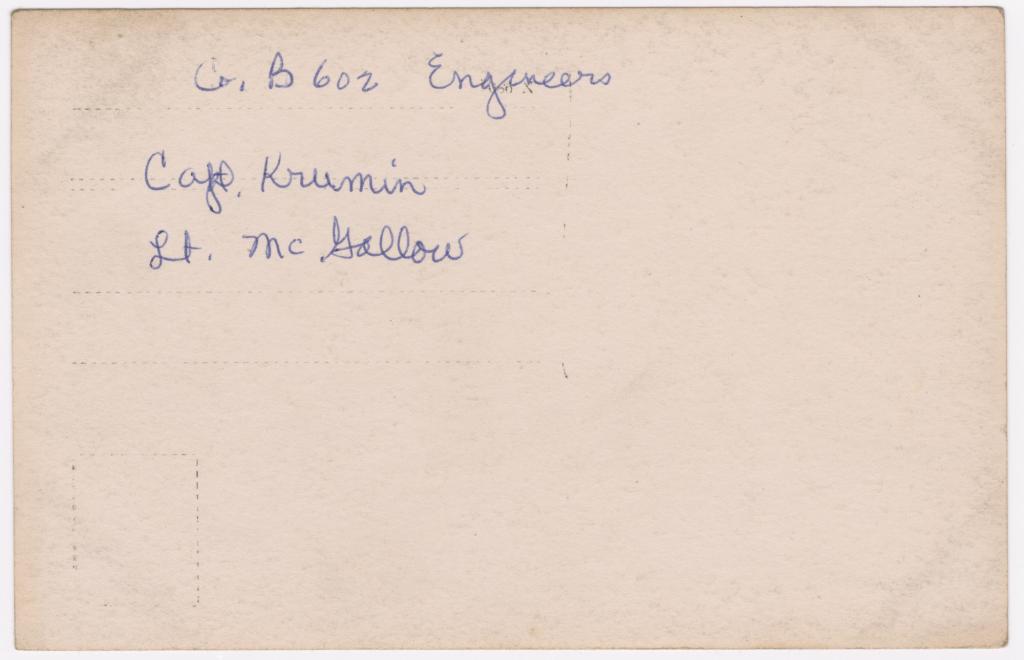 Co. B 602 Engineers
Capt. Krumin
Lt. Mc Gallow